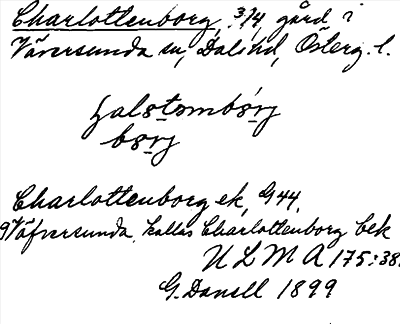 Charlottenborg, 3/4 gård i
Väversunda sn, Dals hd, Österg. l.
bǫrj
Charlottenborg ek, G 44,
Väfversunda, kallas Charlottenborg bek
ULMA 175:38.
G. Danell 1899